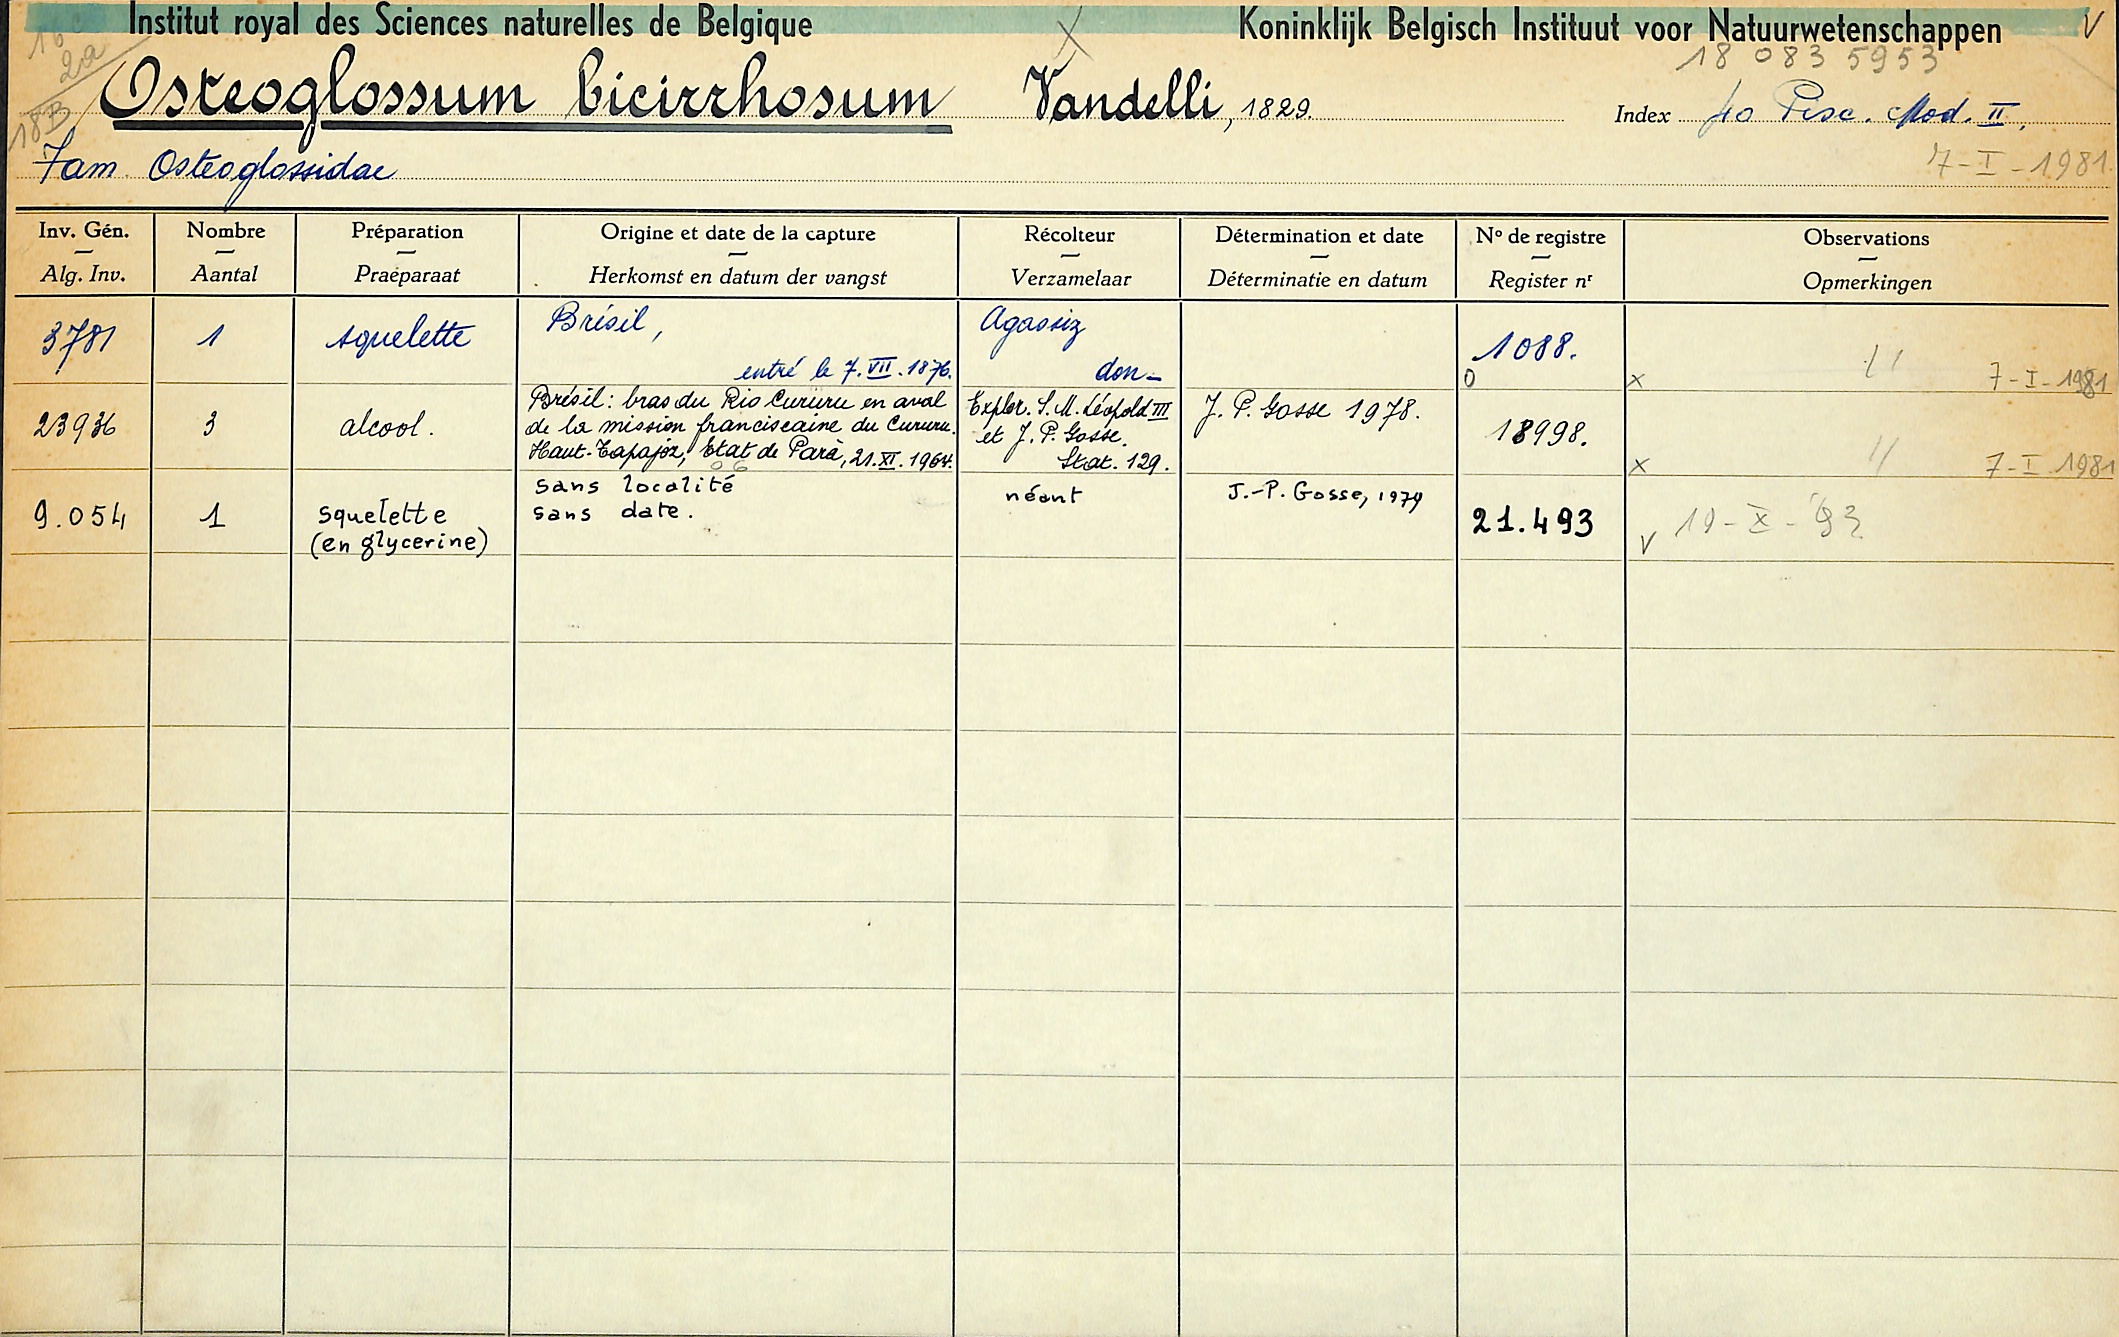 Institut royal des Sciences naturelles de Belgique
Koninklijk Belgisch Instituut voor Natuurwetenschappen
V
X
2a
18B
18 083 5953
Osteoglossum bicirrhosum Vandelli, 1829.
Index 40 Pisc. Mod. II.
Fam. Osteoglossidae
7-I-1981.
Inv. Gén.
Alg. Inv.
Nombre
Aantal
Préparation
Praeparaat
Origine et date de la capture
Herkomst en datum der vangst
Récolteur
Verzamelaar
Détermination et date
Déterminatie en datum
Nº de registre
Register nʳ
Observations
Opmerkingen
3781
1
squelette
Brésil,
entré le 7.VII.1876.
Agassiz
don_
1088.
0
x
//
7-I-1981
23936
3
alcool.
Brésil: bras du Rio Cururu en aval
de la mission franciscaine du Cururu.
Haut-Tapajoz, Etat de Parà, 21.XI.1964.
Explor. S.M. Léopold III
et J.P. Gosse.
Stat. 129.
J.P. Gosse 1978.
18998.
x
//
7-I 1981
9.054
1
squelette
(en glycerine)
sans localité
sans date.
néant
J.-P. Gosse, 1979
21.493
V
19-X-93